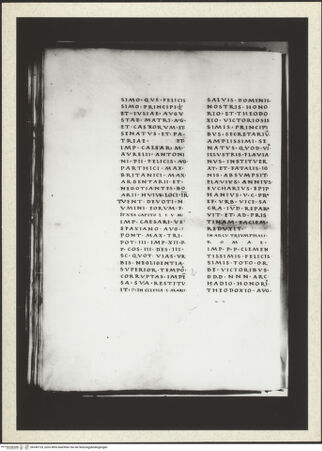 SIMO · QVE · FELICIS
SIMO · PRINCIPI
ET · IVLIAE · AVGV
STAE · MATRI · AVG
ET · CASTRORVM · ET
SENATVS · ET · PA
TRIAE · ET
IMP · CAESAR · M ·
AVRELII · ANTONI
NI · PII · FELICIS · AVG
PARTHICI · MAX ·
BRITANICI · MAX ·
ARGENTARII · ET
NEGOTIANTES · BO
ARII · HVIVS · LOCI ·
DEVOTI · N
VMINI · EORVM ·
IMP · CAESARI · VE
SPASIANO · AVG ·
PONT · MAX · TRI ·
POT · III · IMP · XII · P
P · COS · III · DES · III ·
SC · QVOT · VIAS · VR
BIS · NEGLIGENTIA
SVPERIOR · TEMPO
CORRVPTAS · IMPE
SA · SVA · RESTITV
IT ·
SALVIS · DOMINIS
NOSTRIS · HONO
RIO · ET · THEODO
XIO · VICTORIOSIS
SIMIS · PRINCIPI
BVS · SECRETARIV
AMPLISSIMI · SE
NATVS · QVOD · VI
ILLVSTRIS · FLAVIA
NVS · INSTITVER
AT · ET · FATALIS · IG
NIS · ABSVMPSIT
FLAVIVS · ANNIVS
EVCHARIVS · EPIP
HANIVS · V · C · PR
EF · VRB · VICE · SA
CRA · IVD · REPARA
VIT · ET · AD · PRI
STINAM · FACIEM
REDVXIT ·
IN ARCV TRIVMPHALI ·
R O M A E ·
IMP · P · P · CLEMEN
TISSIMIS · FELICIS
SIMIS · TOTO · OR
BE · VICTORIBVS ·
D D D · N N N · AR
CHADIO · HONORI
THEODOXIO · AVG ·